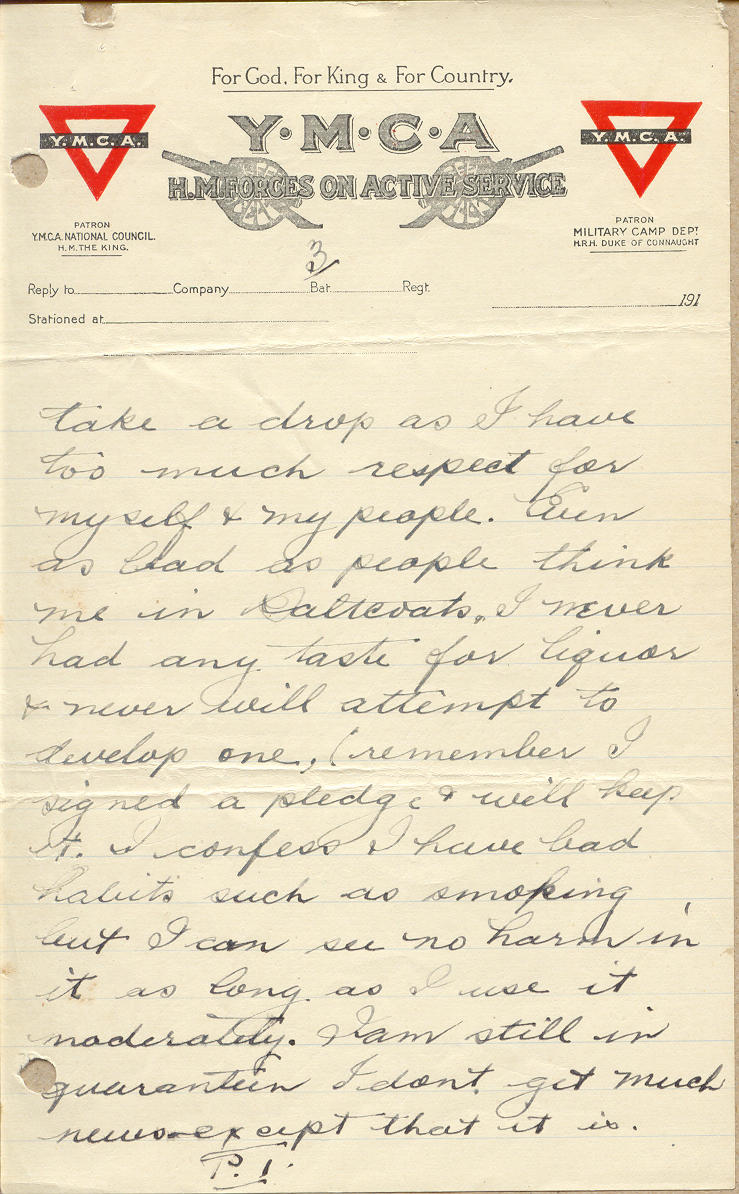 For God, For King & For Country.
Y·M·C·A
H.M. FORCES ON ACTIVE SERVICE
Y.M.C.A.
Y.M.C.A.
PATRON
Y.M.C.A. NATIONAL COUNCIL.
H.M. THE KING.
PATRON
MILITARY CAMP DEPT
H.R.H. DUKE OF CONNAUGHT
3
Reply to Company Bat. Regt.
191
Stationed at
take a drop as I have
too much respect for
myself & my people. Even
as bad as people think
me in Saltcoats, I never
had any taste for liquor
& never will attempt to
develop one, (remember I
signed a pledge & will keep
it. I confess I have bad
habits such as smoking,
but I can see no harm in
it as long as I use it
moderately. I am still in
quarantein I dont get much
news except that it is.
P.T.